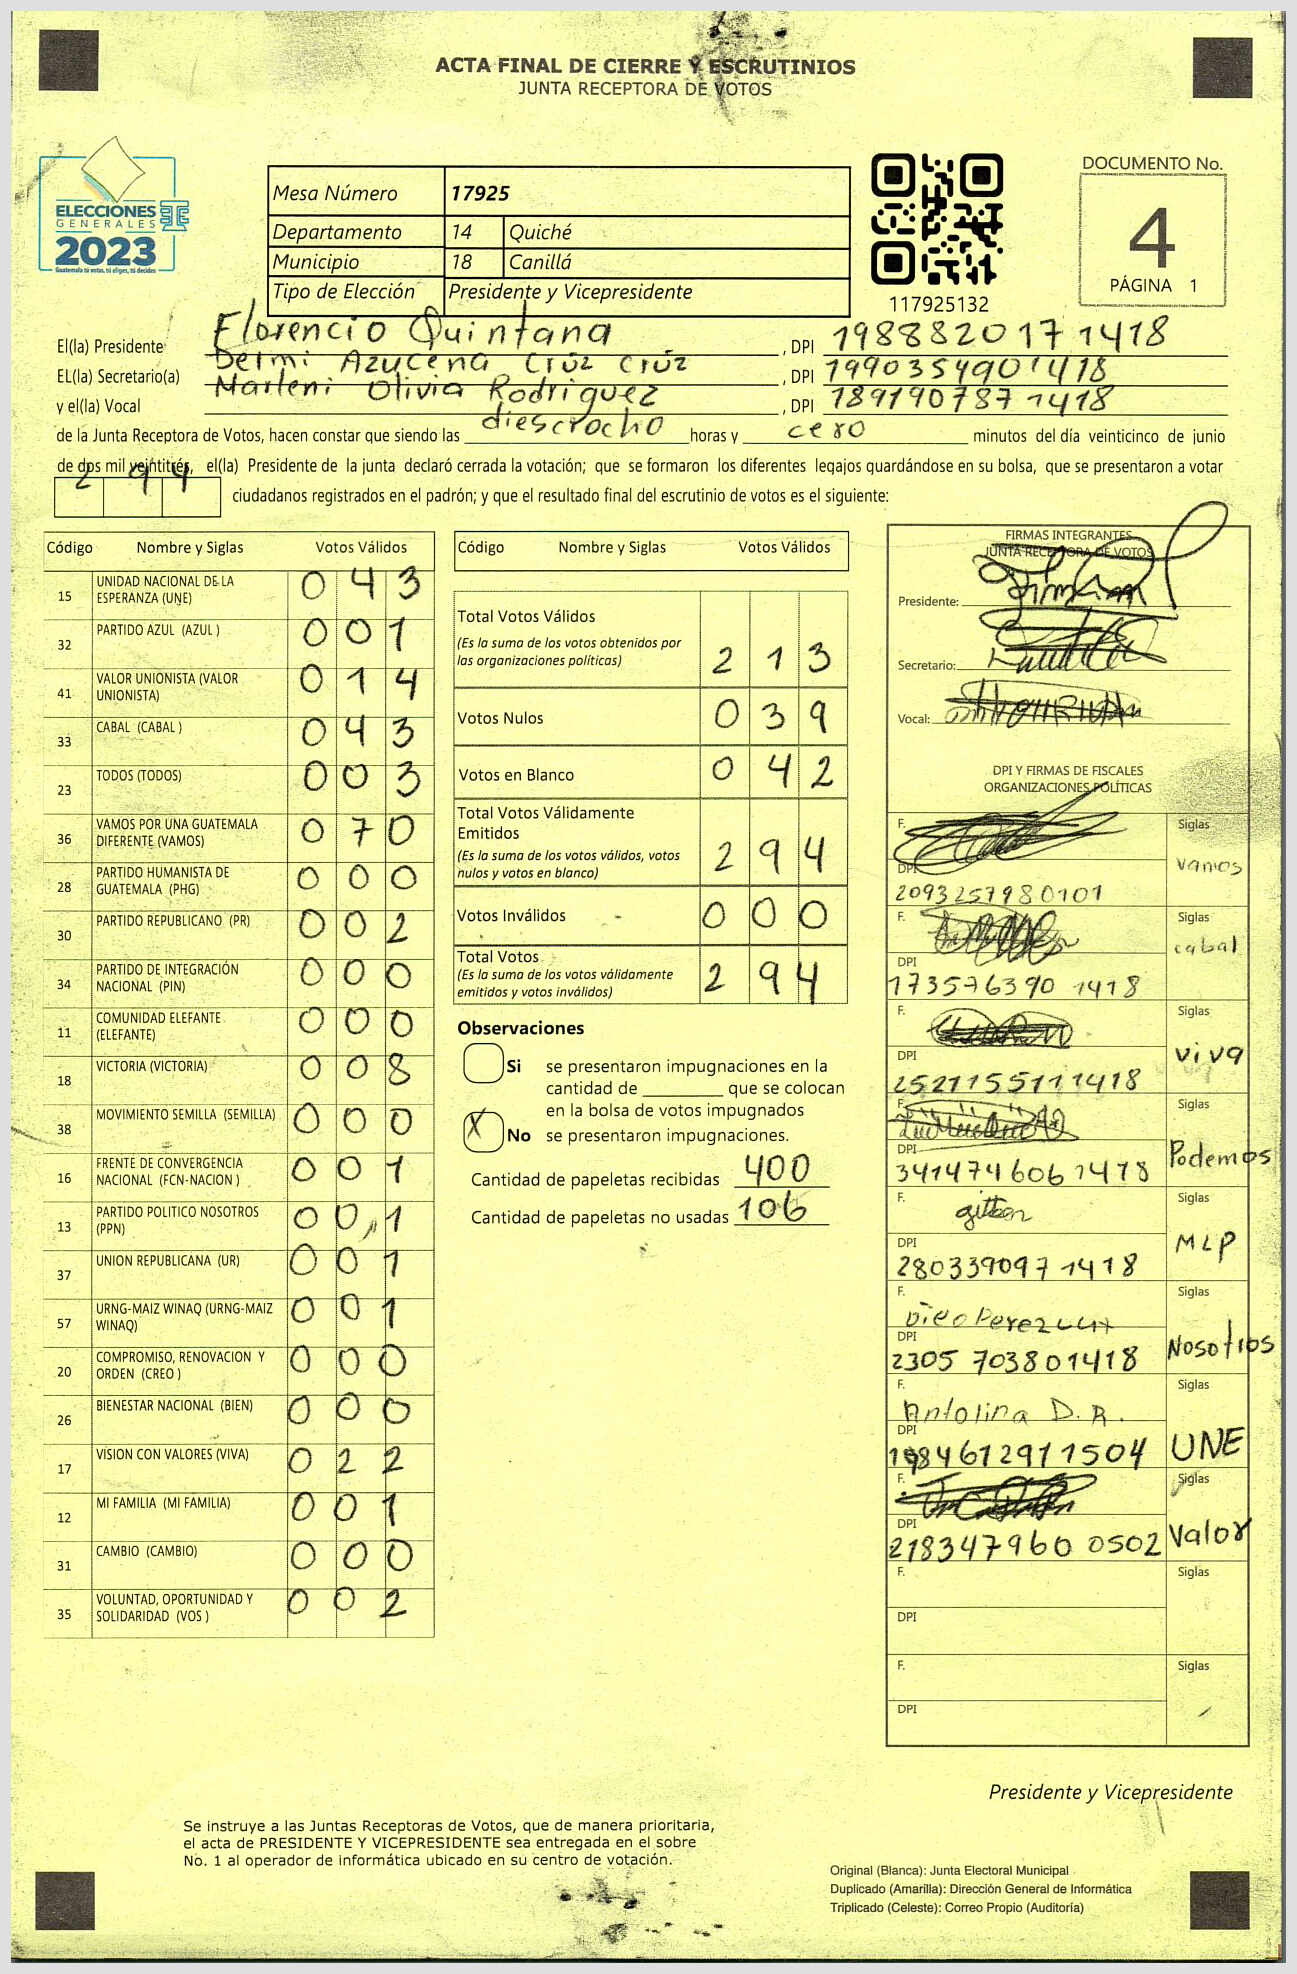 ACTA FINAL DE CIERRE Y ESCRUTINIOS
JUNTA RECEPTORA DE VOTOS
ELECCIONES
GENERALES
2023
Guatemala tú votas, tú eliges, tú decides
Mesa Número 17925
Departamento 14 Quiché
Municipio 18 Canillá
Tipo de Elección Presidente y Vicepresidente
117925132
DOCUMENTO No.
4
PÁGINA 1
El(la) Presidente Florencio Quintana , DPI 1988820171418
EL(la) Secretario(a) Delmi Azucena Crúz Crúz , DPI 1990354901418
y el(la) Vocal Marleni Olivia Rodriguez , DPI 1891907871418
de la Junta Receptora de Votos, hacen constar que siendo las diesciocho horas y cero minutos del día veinticinco de junio
de dos mil veintitrés, el(la) Presidente de la junta declaró cerrada la votación; que se formaron los diferentes legajos guardándose en su bolsa, que se presentaron a votar
2 9 4 ciudadanos registrados en el padrón; y que el resultado final del escrutinio de votos es el siguiente:
Código Nombre y Siglas Votos Válidos
15 UNIDAD NACIONAL DE LA ESPERANZA (UNE) 0 4 3
32 PARTIDO AZUL (AZUL ) 0 0 1
41 VALOR UNIONISTA (VALOR UNIONISTA) 0 1 4
33 CABAL (CABAL ) 0 4 3
23 TODOS (TODOS) 0 0 3
36 VAMOS POR UNA GUATEMALA DIFERENTE (VAMOS) 0 7 0
28 PARTIDO HUMANISTA DE GUATEMALA (PHG) 0 0 0
30 PARTIDO REPUBLICANO (PR) 0 0 2
34 PARTIDO DE INTEGRACIÓN NACIONAL (PIN) 0 0 0
11 COMUNIDAD ELEFANTE (ELEFANTE) 0 0 0
18 VICTORIA (VICTORIA) 0 0 8
38 MOVIMIENTO SEMILLA (SEMILLA) 0 0 0
16 FRENTE DE CONVERGENCIA NACIONAL (FCN-NACION ) 0 0 1
13 PARTIDO POLITICO NOSOTROS (PPN) 0 0 1
37 UNION REPUBLICANA (UR) 0 0 1
57 URNG-MAIZ WINAQ (URNG-MAIZ WINAQ) 0 0 1
20 COMPROMISO, RENOVACION Y ORDEN (CREO ) 0 0 0
26 BIENESTAR NACIONAL (BIEN) 0 0 0
17 VISION CON VALORES (VIVA) 0 2 2
12 MI FAMILIA (MI FAMILIA) 0 0 1
31 CAMBIO (CAMBIO) 0 0 0
35 VOLUNTAD, OPORTUNIDAD Y SOLIDARIDAD (VOS ) 0 0 2
Código Nombre y Siglas Votos Válidos
Total Votos Válidos
(Es la suma de los votos obtenidos por
las organizaciones políticas) 2 1 3
Votos Nulos 0 3 9
Votos en Blanco 0 4 2
Total Votos Válidamente
Emitidos
(Es la suma de los votos válidos, votos
nulos y votos en blanco) 2 9 4
Votos Inválidos 0 0 0
Total Votos
(Es la suma de los votos válidamente
emitidos y votos inválidos) 2 9 4
Observaciones
Si se presentaron impugnaciones en la
cantidad de ________ que se colocan
en la bolsa de votos impugnados
X No se presentaron impugnaciones.
Cantidad de papeletas recibidas 400
Cantidad de papeletas no usadas 106
FIRMAS INTEGRANTES
JUNTA RECEPTORA DE VOTOS
Presidente:
Secretario:
Vocal:
DPI Y FIRMAS DE FISCALES
ORGANIZACIONES POLÍTICAS
F. Siglas
DPI vamos
2093257980101
F. Siglas
DPI cabal
173576390 1418
F. Siglas
DPI viva
2521155111418
F. Siglas
DPI Podemos
3414746061418
F. Siglas
DPI MLP
2803390971418
F. Siglas
DPI Nosotros
2305 703801418
F. Antolina D. R. Siglas
DPI UNE
1984612911504
F. Siglas
DPI Valor
218347960 0502
F. Siglas
DPI
F. Siglas
DPI
Presidente y Vicepresidente
Se instruye a las Juntas Receptoras de Votos, que de manera prioritaria,
el acta de PRESIDENTE Y VICEPRESIDENTE sea entregada en el sobre
No. 1 al operador de informática ubicado en su centro de votación.
Original (Blanca): Junta Electoral Municipal
Duplicado (Amarilla): Dirección General de Informática
Triplicado (Celeste): Correo Propio (Auditoría)